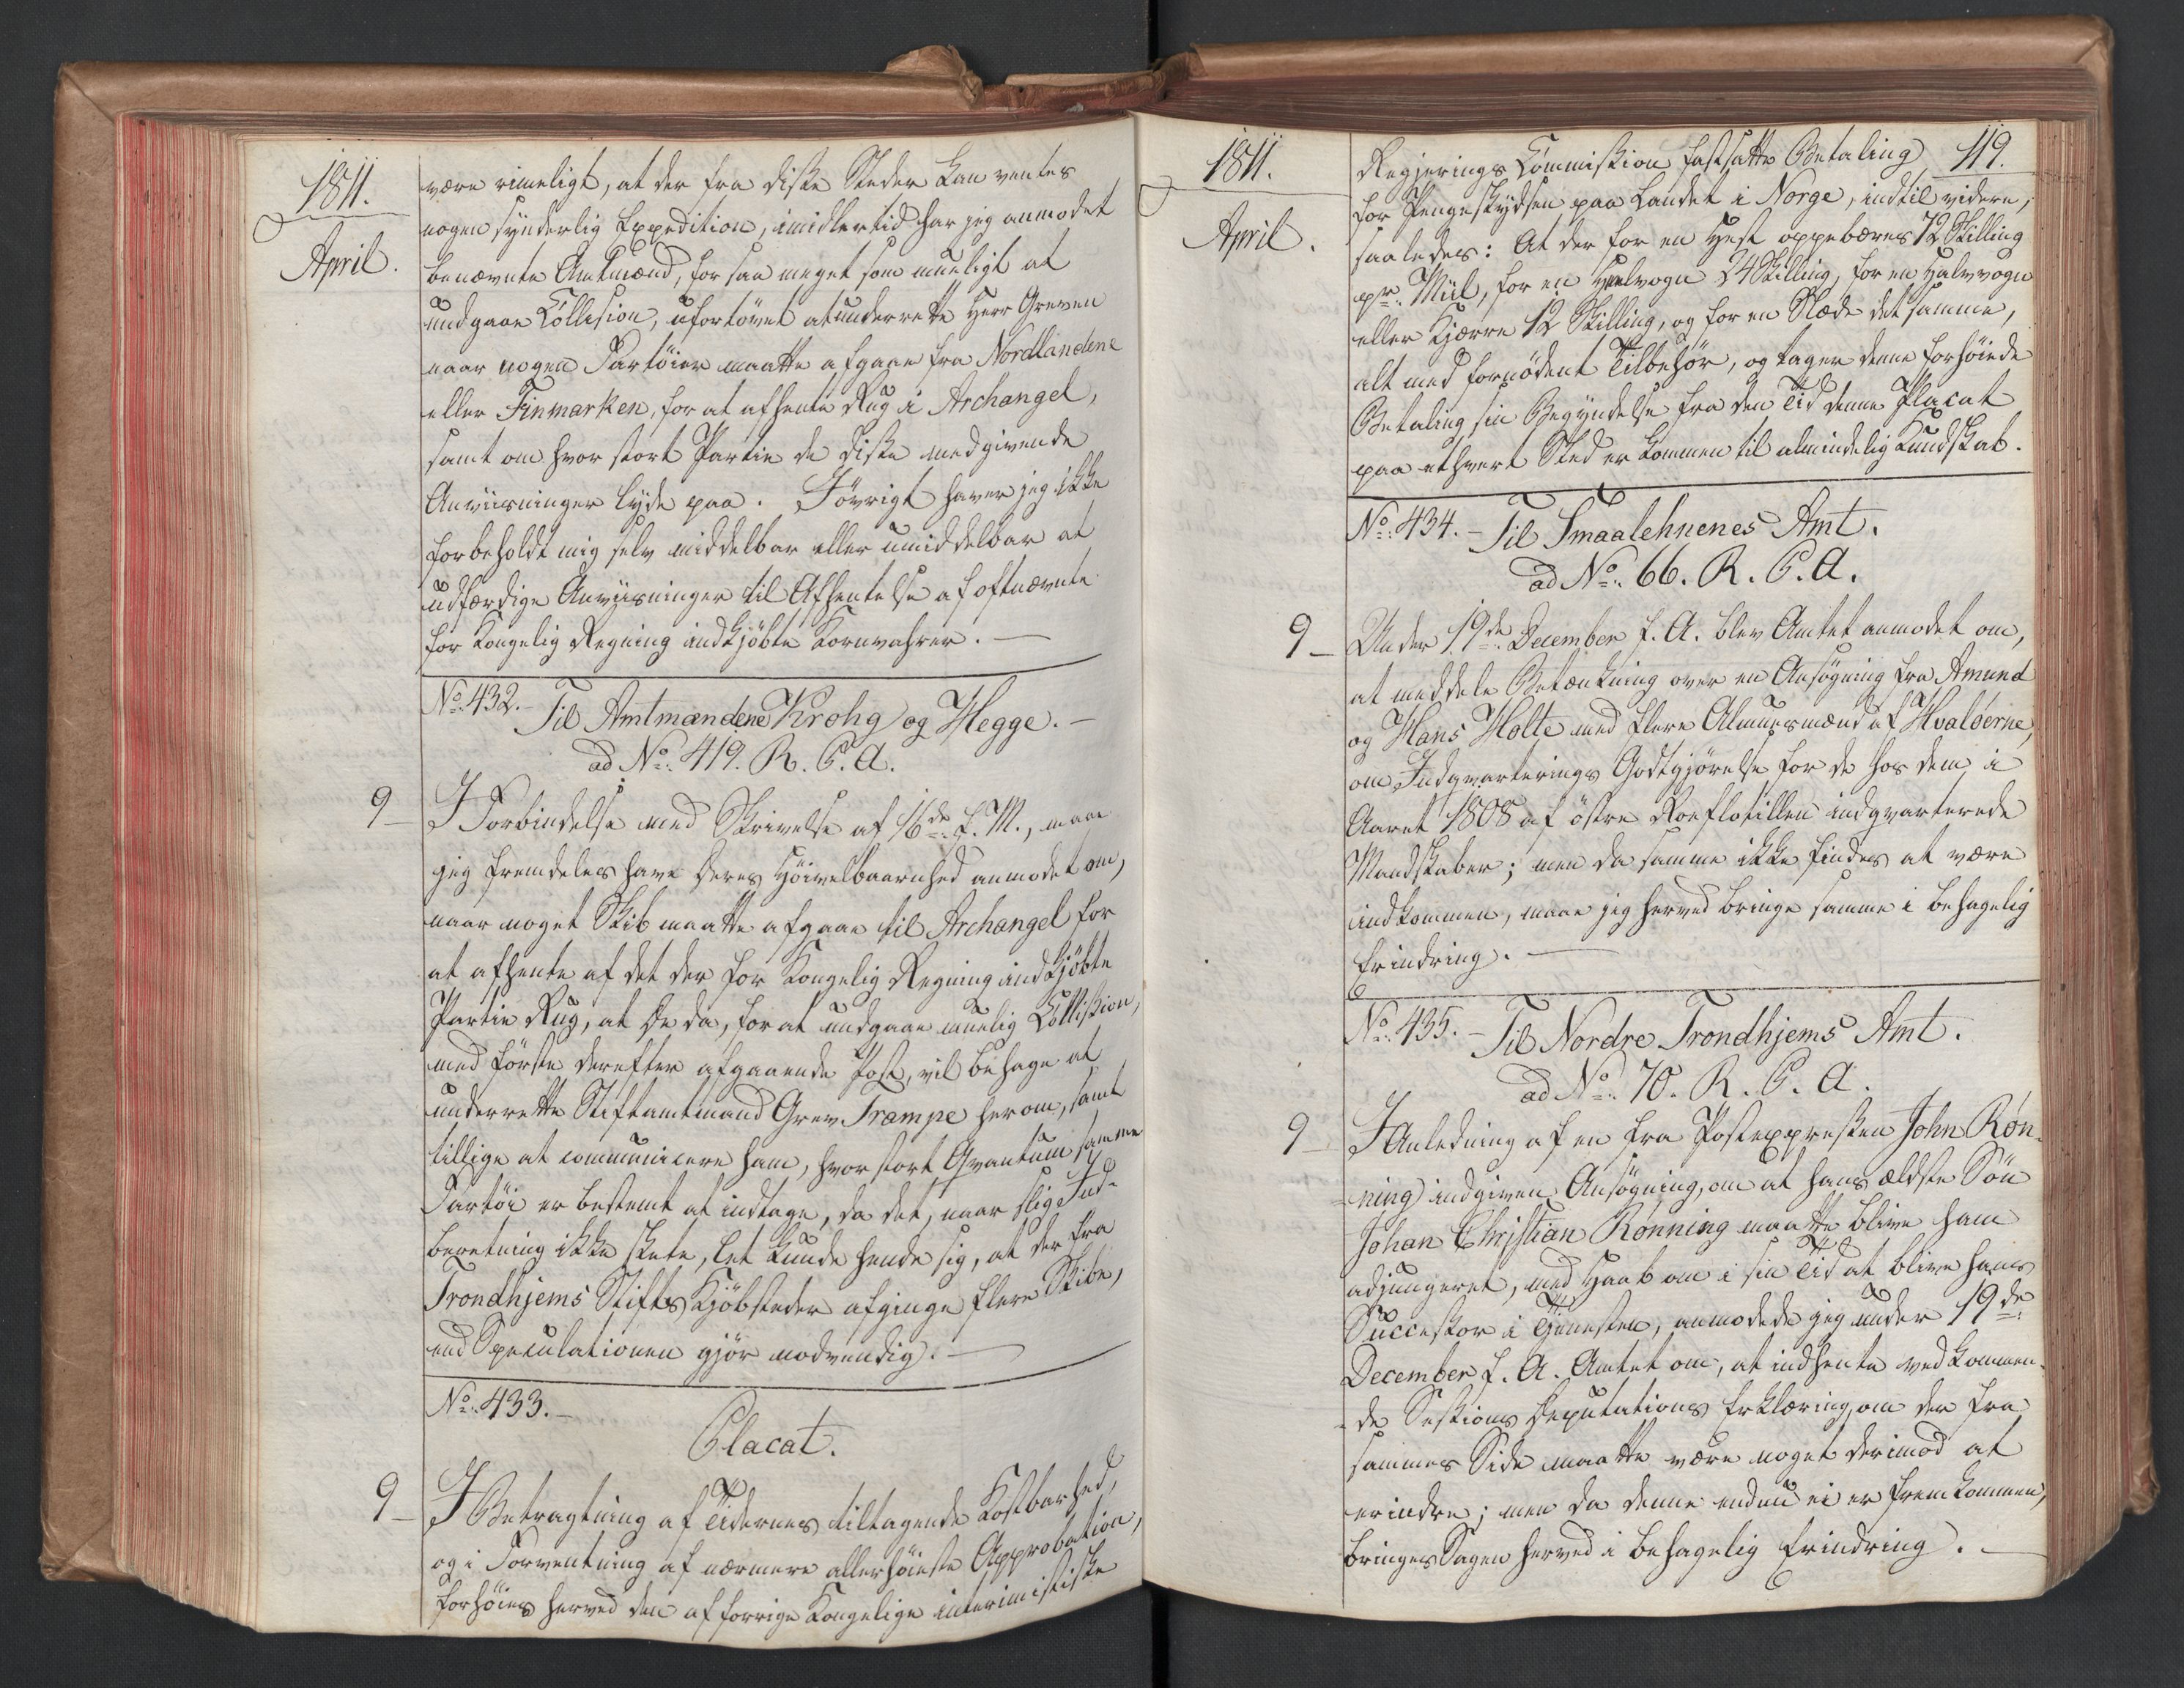 1811.
April.
være rimeligt, at der fra disse Steder kan ventes
nogen synderlig Expedition, imidlertid har jeg anmodet
benævnte Amtmænd, for saa meget som mueligt at
undgaae Collision, ufortøvet at underrette Herr Greven
naar nogen Fartøier maatte afgaae fra Nordlandene
eller Finmarken, for at afhente Rug i Archangel,
samt om hvor stort Partie de disse medgivende
Anviisninger lyde paa. Iøvrigt haver jeg ikke
forbeholdt mig selv middelbar eller umiddelbar at
udfærdige Anviisninger til Afhentelse af oftnævnte
for Kongelig Regning indkjøbte Kornvahrer. —
No. 432. – Til Amtmændene Krohg og Hegge. –
ad No. 419. R. C. A.
9 – I Forbindelse med Skrivelse af 16de f. M., maae
jeg fremdeles have Deres Høivelbaarnhed anmodet om,
naar noget Skib maatte afgaae til Archangel for
at afhente af det der for Kongelig Regning indkjøbte
Partie Rug, at De da, for at undgaae muelig Collission,
med første derefter afgaaende Post, vil behage at
underrette Stiftamtmand Grev Trampe herom, samt
tillige at communicere ham, hvor stort Qvantum samme
Fartøi er bestemt at indtage, da det, naar slig Ind-
beretning ikke skete, let kunde hende sig, at der fra
Trondhjems Stifts Kjøbsteder afginge flere Skibe,
end Speculationen gjør nødvendig. —
No. 433. –
Placat.
9 – I Betragtning af Tidernes tiltagende Kostbarhed,
og i Forventning af nærmere allerhøieste Approbation,
forhøies herved den af forrige Kongelige interimistiske
1811.
119.
April.
Regjerings Commission fastsatte Betaling
for Pengeskydsen paa Landet i Norge, indtil videre,
saaledes: At der for en Hest oppebæres 72 Skilling
pr. Miil, for en Heelvogn 24 Skilling, for en Halvvogn
eller Kjærre 12 Skilling, og for en Slæde det samme,
alt med fornødent Tilbehør, og tager denne forhøiede
Betaling sin Begyndelse fra den Tid denne Placat
paa ethvert Sted er kommen til almindelig Kundskab.
No. 434. – Til Smaalehnenes Amt.
ad No. 66. R. C. A.
9 – Under 19de December f. A. blev Amtet anmodet om,
at meddele Betænkning over en Ansøgning fra Amund
og Hans Holte med flere Almuesmænd af Hvaløerne,
om Indqvarterings Godtgjørelse for de hos dem i
Aaret 1808 af østre Roeflotillen indqvarterede
Mandskaber; men da samme ikke findes at være
indkommen, maae jeg herved bringe samme i behagelig
Erindring. —
No. 435. – Til Nordre Trondhjems Amt.
ad No. 70. R. C. A.
9 – I Anledning af en fra Postexpressen John Røn-
-ning indgiven Ansøgning, om at hans ældste Søn
Johan Christian Rønning maatte blive ham
adjungeret, med Haab om i sin Tid at blive hans
Successor i Tjenesten, anmodede jeg under 19de
December f. A. Amtet om, at indhente vedkommen-
-de Sessions Deputations Erklæring, om der fra
sammes Side maatte være noget derimod at
erindre; men da denne endnu ei er fremkommen,
bringes Sagen herved i behagelig Erindring. —